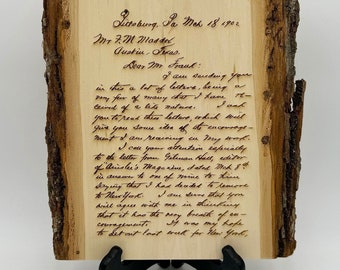 Pittsburg, Pa Mch 18, 1902
Mr F. M. Maddox
Austin, Texas.
Dear Mr. Frank:
I am sending you
in this a lot of letters, being a
very few of many that I have re-
ceived of a like nature. I wish
you to read these letters, which will
give you some idea of the encourage-
ment I am receiving in my work.
I call your attention especially
to the letter from Gilman Hall, editor
of Ainslee's Magazine, dated Mch 9th
in answer to one of mine to him
saying that I had decided to remove
to New York. I am sure that you
will agree with me in thinking
that it has the very breath of en-
couragement. It was my hope
to set out last week for New York,